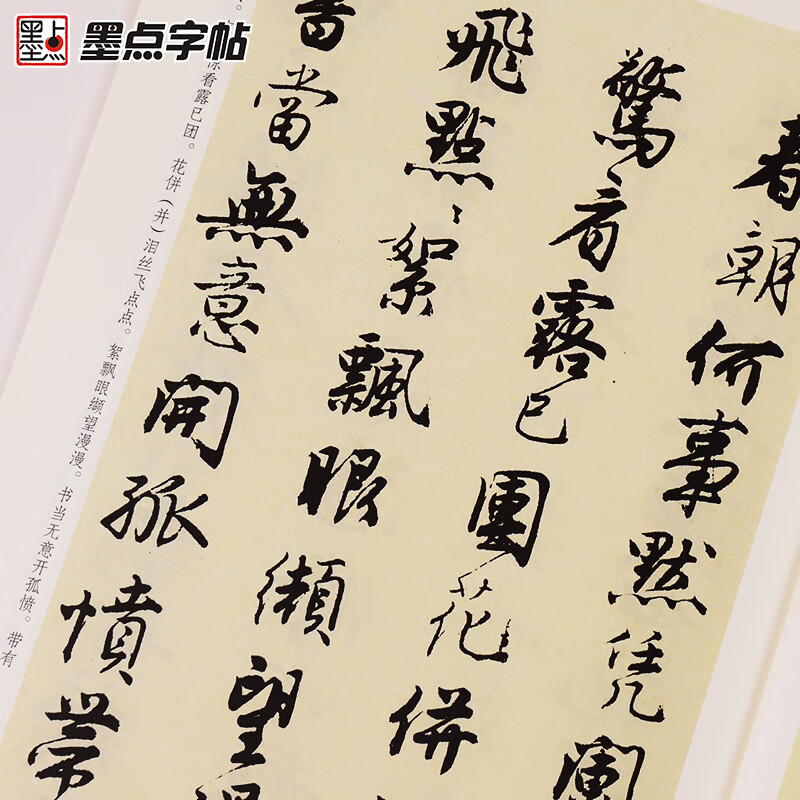 墨点字帖
春朝何事默凭阑
惊看露已團花併
飛點點絮飄眼纈望
書當無意開孤憤帶
惊看露已团。花併（并）泪丝飞点点。絮飘眼缬望漫漫。书当无意开孤愤。带有